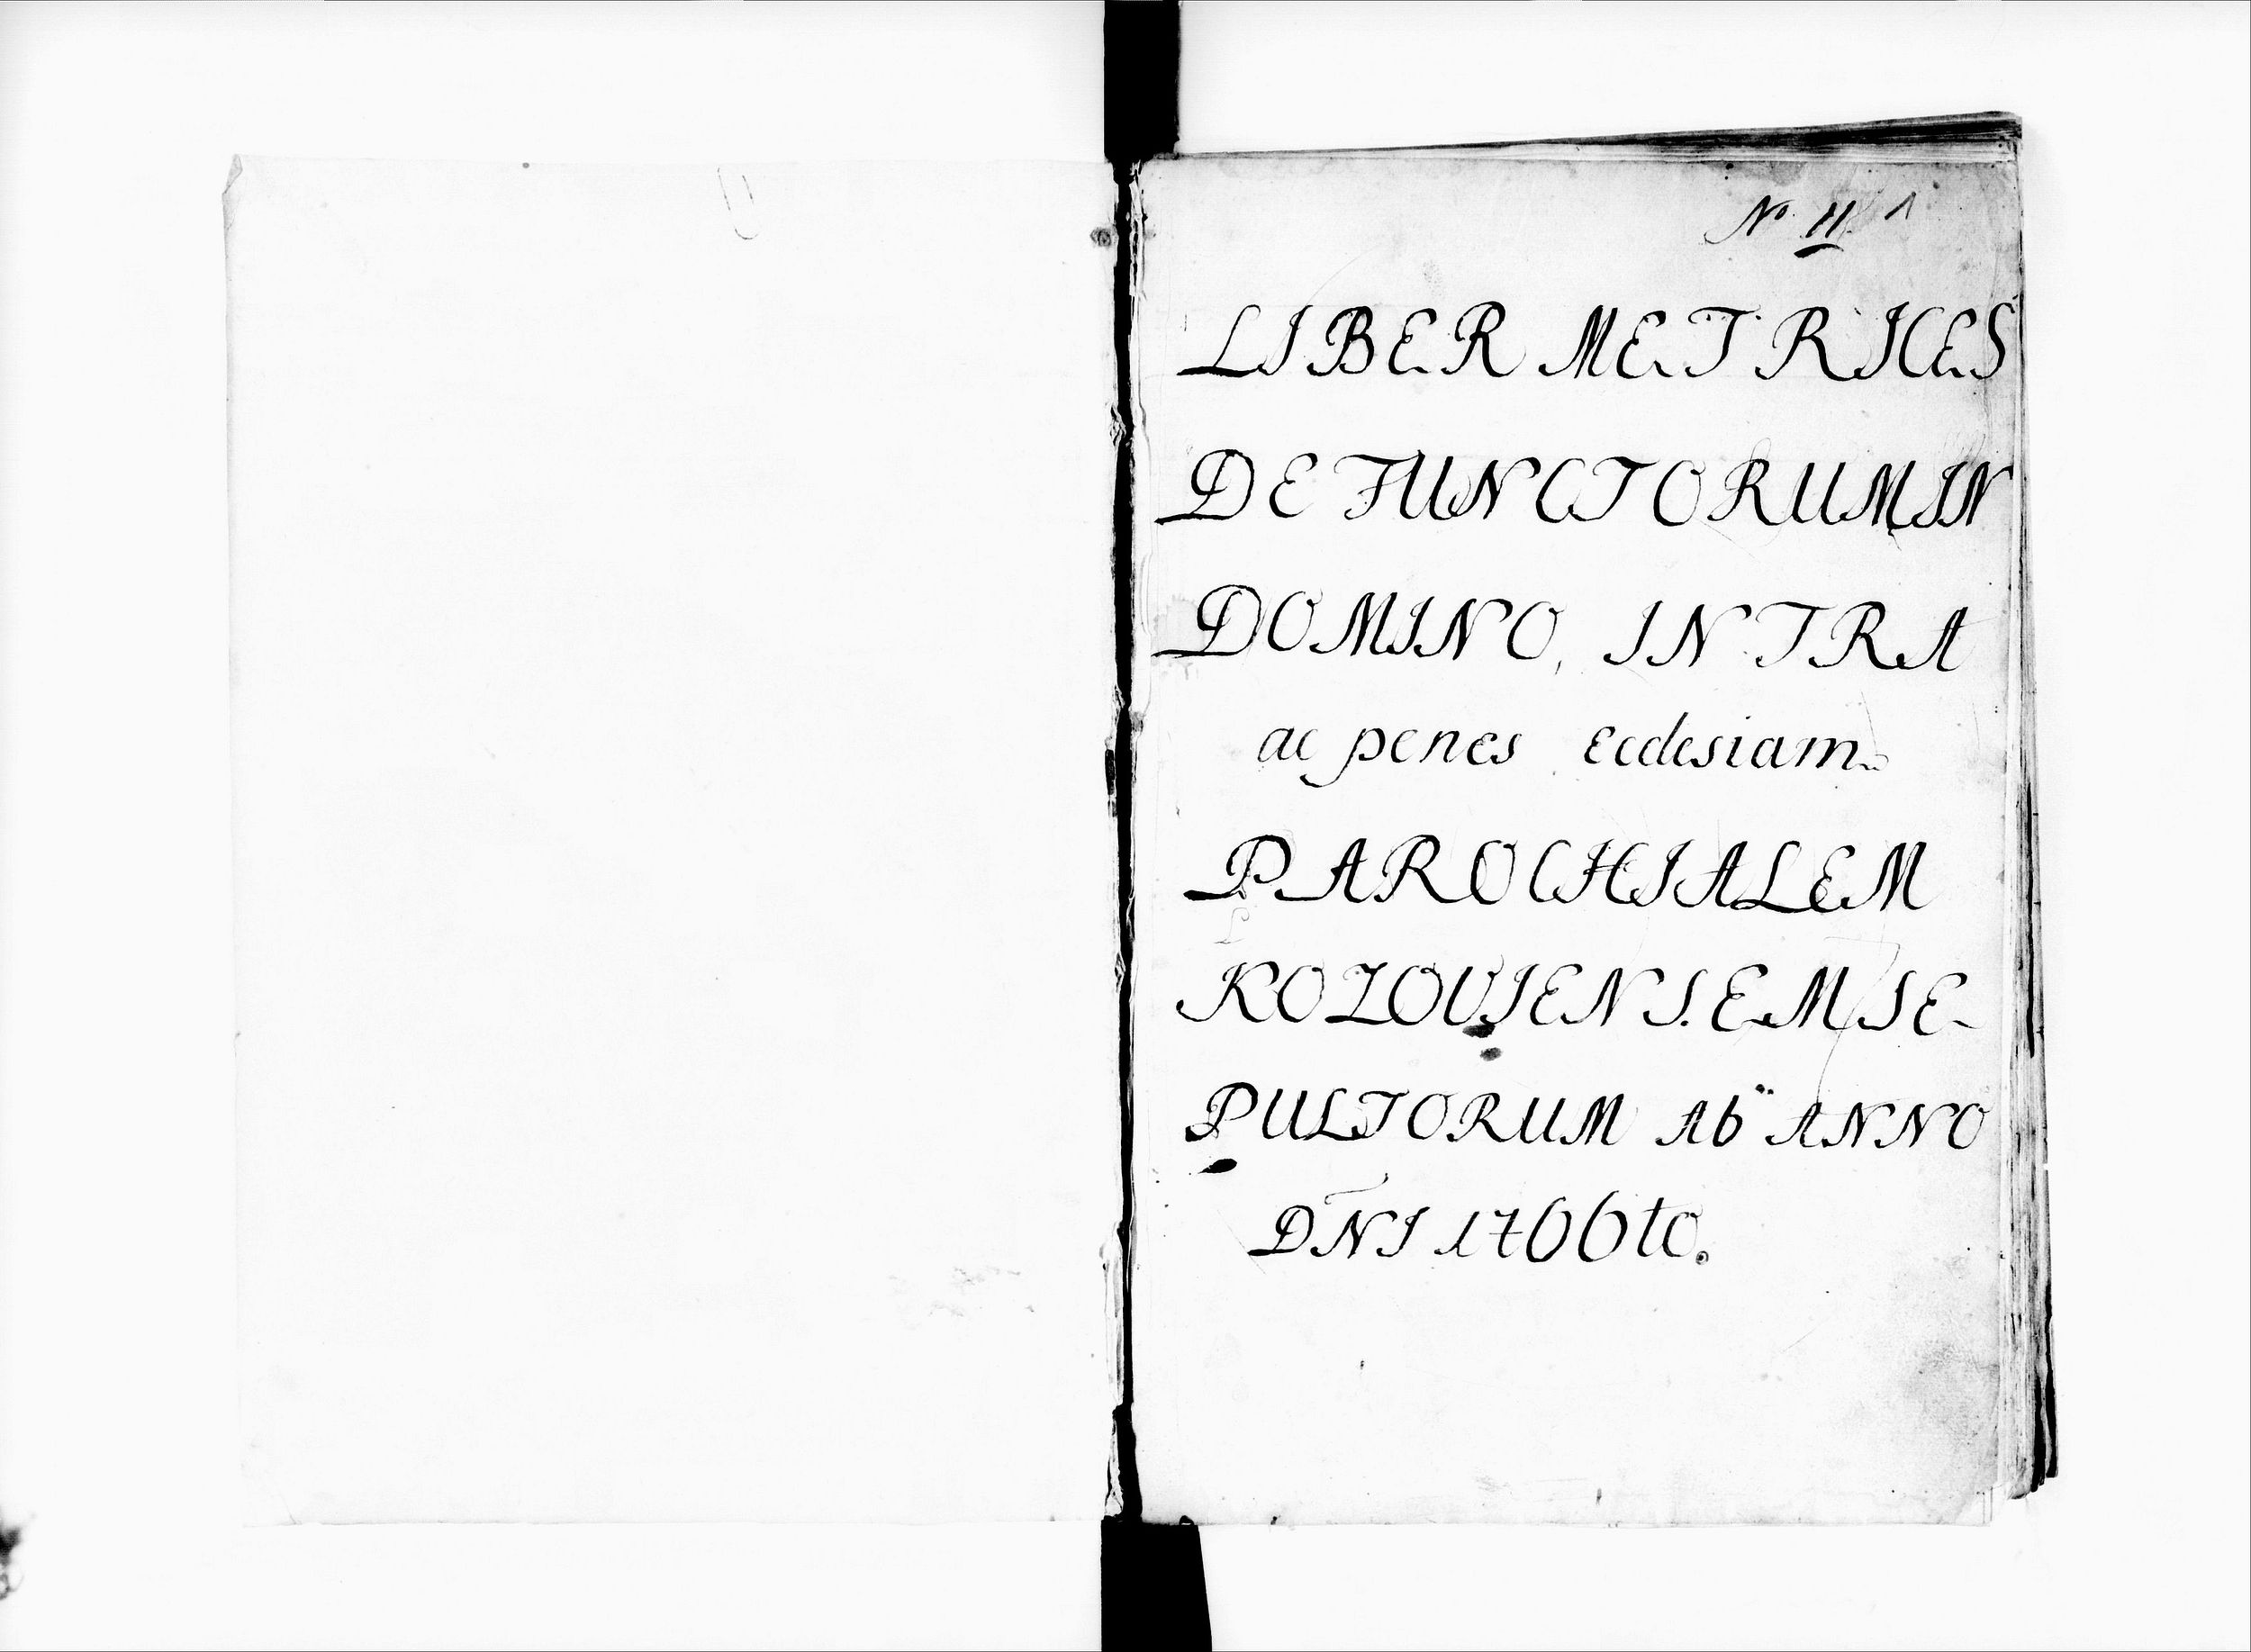 No 11 1
LIBER METRICES
DEFUNCTORUM IN
DOMINO, INTRA
ac penes Ecclesiam
PAROCHIALEM
KOZOVIENSEM SE-
PULTORUM Ab ANNO
DNI 1766to.